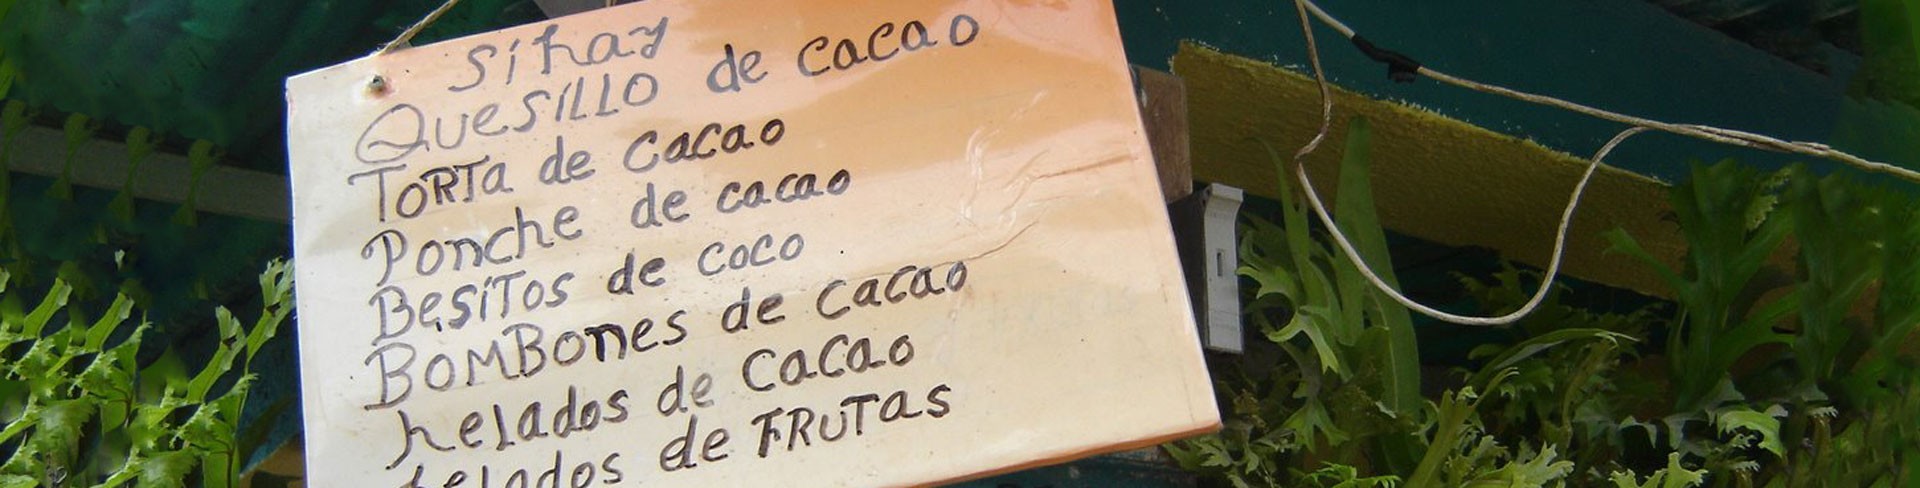 Si hay
Quesillo de cacao
TORTa de cacao
Ponche de cacao
BesiTos de coco
BOMBones de cacao
helados de cacao
helados de FRUTas